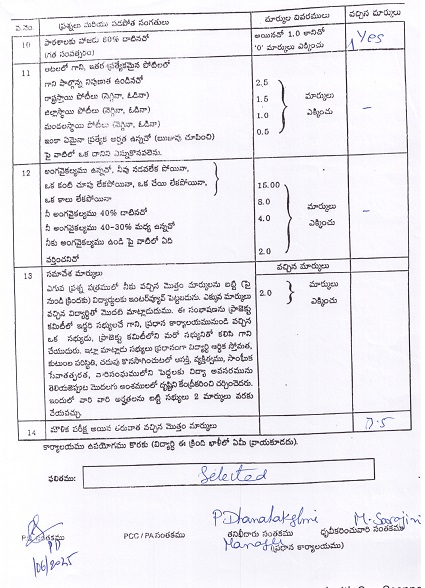 వ.నెం ప్రశ్నలు మరియు సడపోత సంగతులు మార్కుల వివరములు వచ్చిన మార్కులు
10 పాఠశాలకు హాజరు 60% దాటినచో అయినచో 1.0 కానిచో Yes
(గత సంవత్సరం) '0' మార్కులు ఎక్కించు
11 ఆటలలో గాని, ఇతర ప్రత్యేకమైన పోటీలలో
గాని పాల్గొన్న నిపుణత ఉండినచో 2.5
రాష్ట్రస్థాయి పోటీలు (నెగ్గినా, ఓడినా) 1.5 మార్కులు
జిల్లాస్థాయి పోటీలు (నెగ్గినా, ఓడినా) 1.0 ఎక్కించు –
మండలస్థాయి పోటీలు (నెగ్గినా, ఓడినా) 0.5
ఇంకా ఏమైనా ప్రత్యేక అర్హత ఉన్నచో (ఋజువు చూపించి)
పై వాటిలో ఒక దానిని ఎన్నుకొనవలెను.
12 అంగవైకల్యము ఉన్నచో, నీవు నడవలేక పోయినా,
ఒక కంటి చూపు లేకపోయినా, ఒక చేయి లేకపోయినా, 15.00
ఒక కాలు లేకపోయినా 8.0 మార్కులు
నీ అంగవైకల్యము 40% దాటినచో 4.0 ఎక్కించు –
నీ అంగవైకల్యము 40-30% మధ్య ఉన్నచో
నీకు అంగవైకల్యము ఉండి పై వాటిలో ఏది 2.0
వర్తించనిచో
13 సమావేశ మార్కులు వచ్చిన మార్కులు
ఎగువ ప్రశ్న పత్రములో నీకు వచ్చిన మొత్తం మార్కులను బట్టి (పై 2.0 మార్కులు
నుండి క్రిందకు) విద్యార్థులకు ఇంటర్వ్యూర్ పెట్టబడును. ఎక్కువ మార్కులు ఎక్కించు
వచ్చిన విద్యార్థితో మొదటి మాట్లాడుదుము. ఈ సంభాషణను ప్రాజెక్టు
కమిటీలో ఇద్దరి సభ్యులచే గాని, ప్రధాన కార్యాలయమునుండి వచ్చిన
ఒక సభ్యుడు, ప్రాజెక్ట్ కమిటీలోని మరో సభ్యునితో కలిసి గాని
చేయుదురు. ఇట్లా మాట్లాడు సభ్యులు ప్రధానంగా విద్యార్థి ఆర్థిక స్తోమత,
కుటుంబ పరిస్థితి, చదువు కొనసాగించుటలో ఆసక్తి, వ్యక్తిత్వము, సాంఘిక
సేవాతత్పరత, వారిసంఘములోని పెద్దలకు విద్యా అవసరమును
తెలియజెప్పుట మొదలగు అంశములలో దృష్టిని కేంద్రీకరించి చర్చించెదరు.
ఇందులో వారి వారి అర్హతలను బట్టి సభ్యులు 2 మార్కులు వరకు
వేయవచ్చు.
14 మౌళిక పరీక్ష అయిన తరువాత వచ్చిన మొత్తం మార్కులు
కార్యాలయము ఉపయోగము కొరకు (విద్యార్థి ఈ క్రింది ఖాళీలో ఏమీ వ్రాయకూడదు).
ఫలితము: Selected
P Dhanalakshmi M. Sarojini
PCC / PA సంతకము తనిఖీదారు సంతకము ధృవీకరించువారి సంతకము
Manager (ప్రధాన కార్యాలయం)
/06/2025